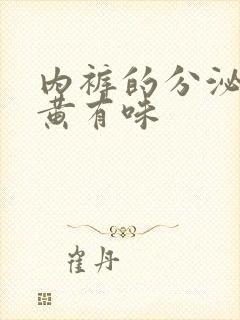 内裤的分泌
黄有味
崔丹